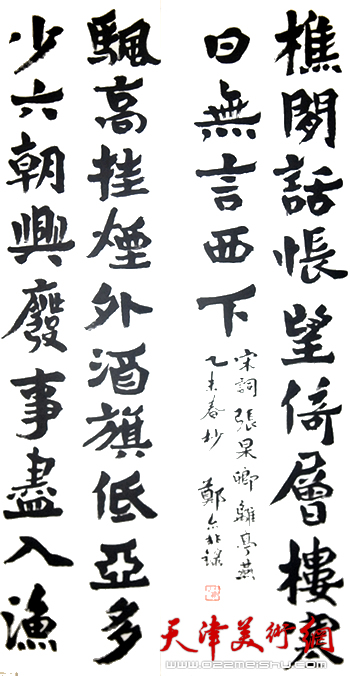 颿高挂煙外酒旗低亞多
少六朝興廢事盡入漁
樵閒話悵望倚層樓寒
日無言西下
宋詞張杲卿離亭燕
乙未春杪 鄭非錄
天津美術網
www.022meishu.com